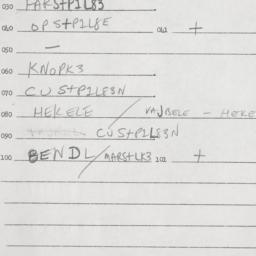 030 PARS+P1L83
040 OPS+P1L8E 041 +
050 —
060 KNOPK3
070 CUS+P1L83N
080 HEKELE / VAJBELE - HEKE
090 CUS+P1L83N
100 BENDL / MARS+LK3 101 +